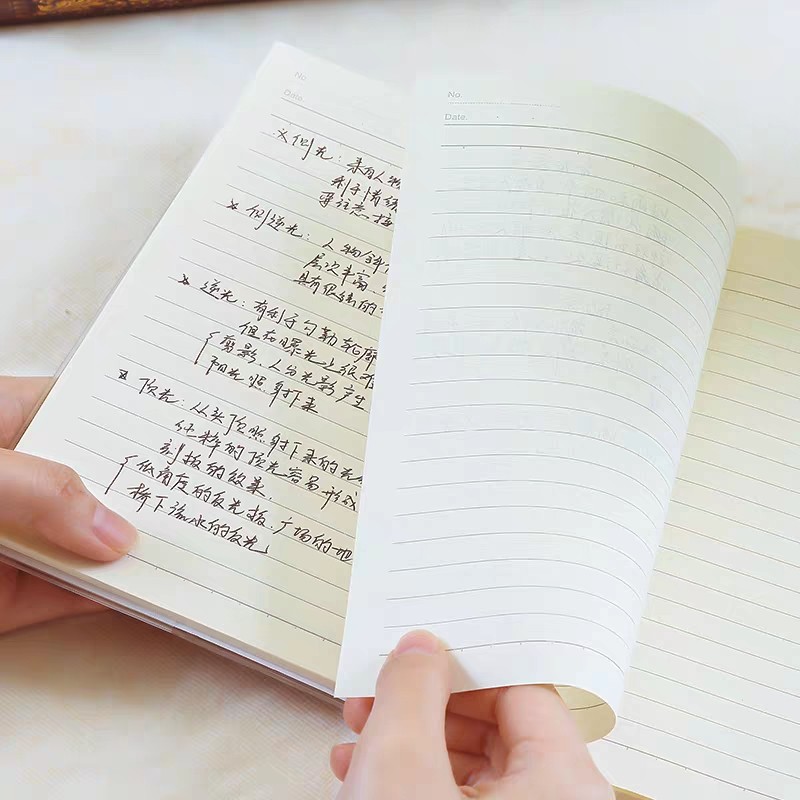 No.
Date.
×侧光：来自人物
利于情绪
要注意
×侧逆光：人物斜
层次丰富
具有很结的
×逆光：有利于勾勒轮廓
但在曝光上很
剪影，人台光影产生
阳光照射下来
×顶光：从头顶照射下来的光
纯粹的顶光容易形成
刻板的效果.
低角度的反光板.广场的地
桥下流水的反光
No.
Date.